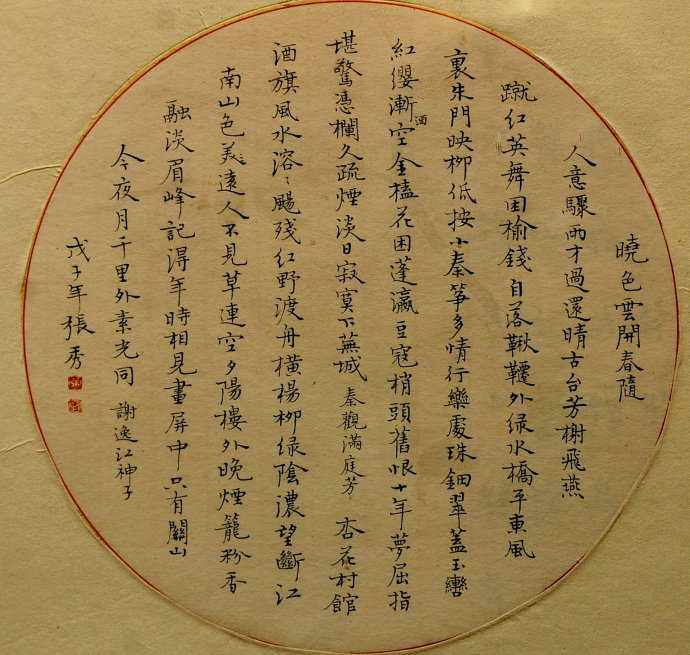 曉色雲開春隨
人意驟雨才過還晴古台芳榭飛燕
蹴红英舞困榆錢自落鞦韆外绿水橋平東風
裏朱門映柳低按小秦筝多情行樂處珠鈿翠蓋玉轡
紅纓漸酒空金榼花困蓬瀛豆寇梢頭舊恨十年夢屈指
堪驚憑欄久疏煙淡日寂寞下蕪城 秦觀滿庭芳 杏花村館
酒旗風水溶〻颺残红野渡舟橫楊柳绿陰濃望斷江
南山色美遠人不見草連空夕陽樓外晚煙籠粉香
融淡眉峰記得年時相見畫屏中只有關山
今夜月千里外素光同 謝逸江神子
戊子年張秀